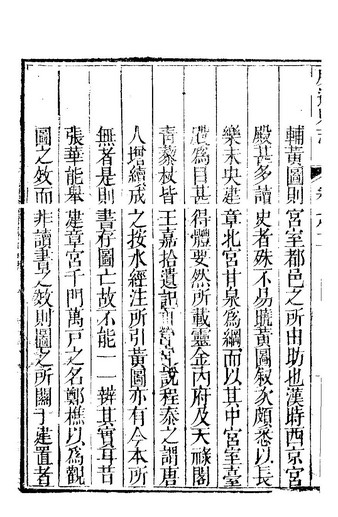 輔黃圖則宮室都邑之所由助也漢時西京宮
殿甚多讀史者殊不易曉黃圖叙次頗悉以長
樂未央建章北宮甘泉爲綱而以其中宮室臺
爲目甚得體要然所載靈金內府及天祿閣
青藜杖皆王嘉拾遺記說程泰之謂唐
人增續成之按水經注所引黃圖亦有今本所
無者是則書存圖亡故不能一一辨其實耳昔
張華能舉建章宮千門萬戸之名鄭樵以爲觀
圖之效而非讀書之效則圖之所關于建置者